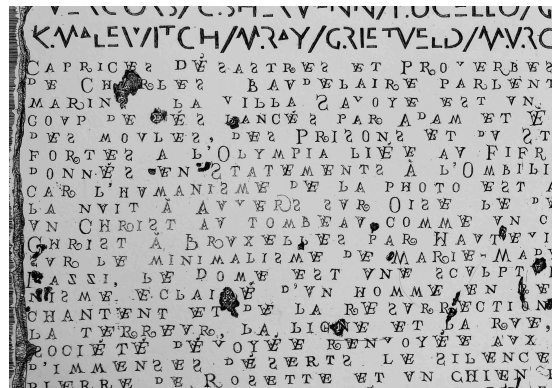 K.MALEVITCH/M.RAY/G.RIETVELD/M.V.RO
CAPRICES DÉSASTRES ET PROVERBES
DE CHARLES BAVDELAIRE PARLENT
MARIN LA VILLA SAVOYE EST VN
COVP DE DÉS LANCÉS PAR ADAM ET È
DES MOVLES, DES PRISONS ET DV ST
FORTES A L'OLYMPIA LIÉE AV FIFR
DONNÉS EN STATEMENTS À L'OMBILI
CAR L'HVMANISME DE LA PHOTO EST A
LA NVIT À AVVERS SVR OISE LE DE
VN CHRIST AV TOMBEAV COMME VN C
CHRIST À BRVXELLES PAR HAVTEVI
SVR LE MINIMALISME DE MARIE-MAD
NAZZI, LE DOME EST VNE SCVLPT
NISME ECLAIRÉ D'VN HOMME EN
CHANTENT ET DE LA RESVRRECTION
LA TERREVR, LA LIGNE ET LA RVE,
SOCIÉTÉ DÉVOYÉE RENVOYÉE AVX
D'IMMENSES DÉSERTS LE SILENCE
PIERRE DE ROSETTE ET VN CHIEN